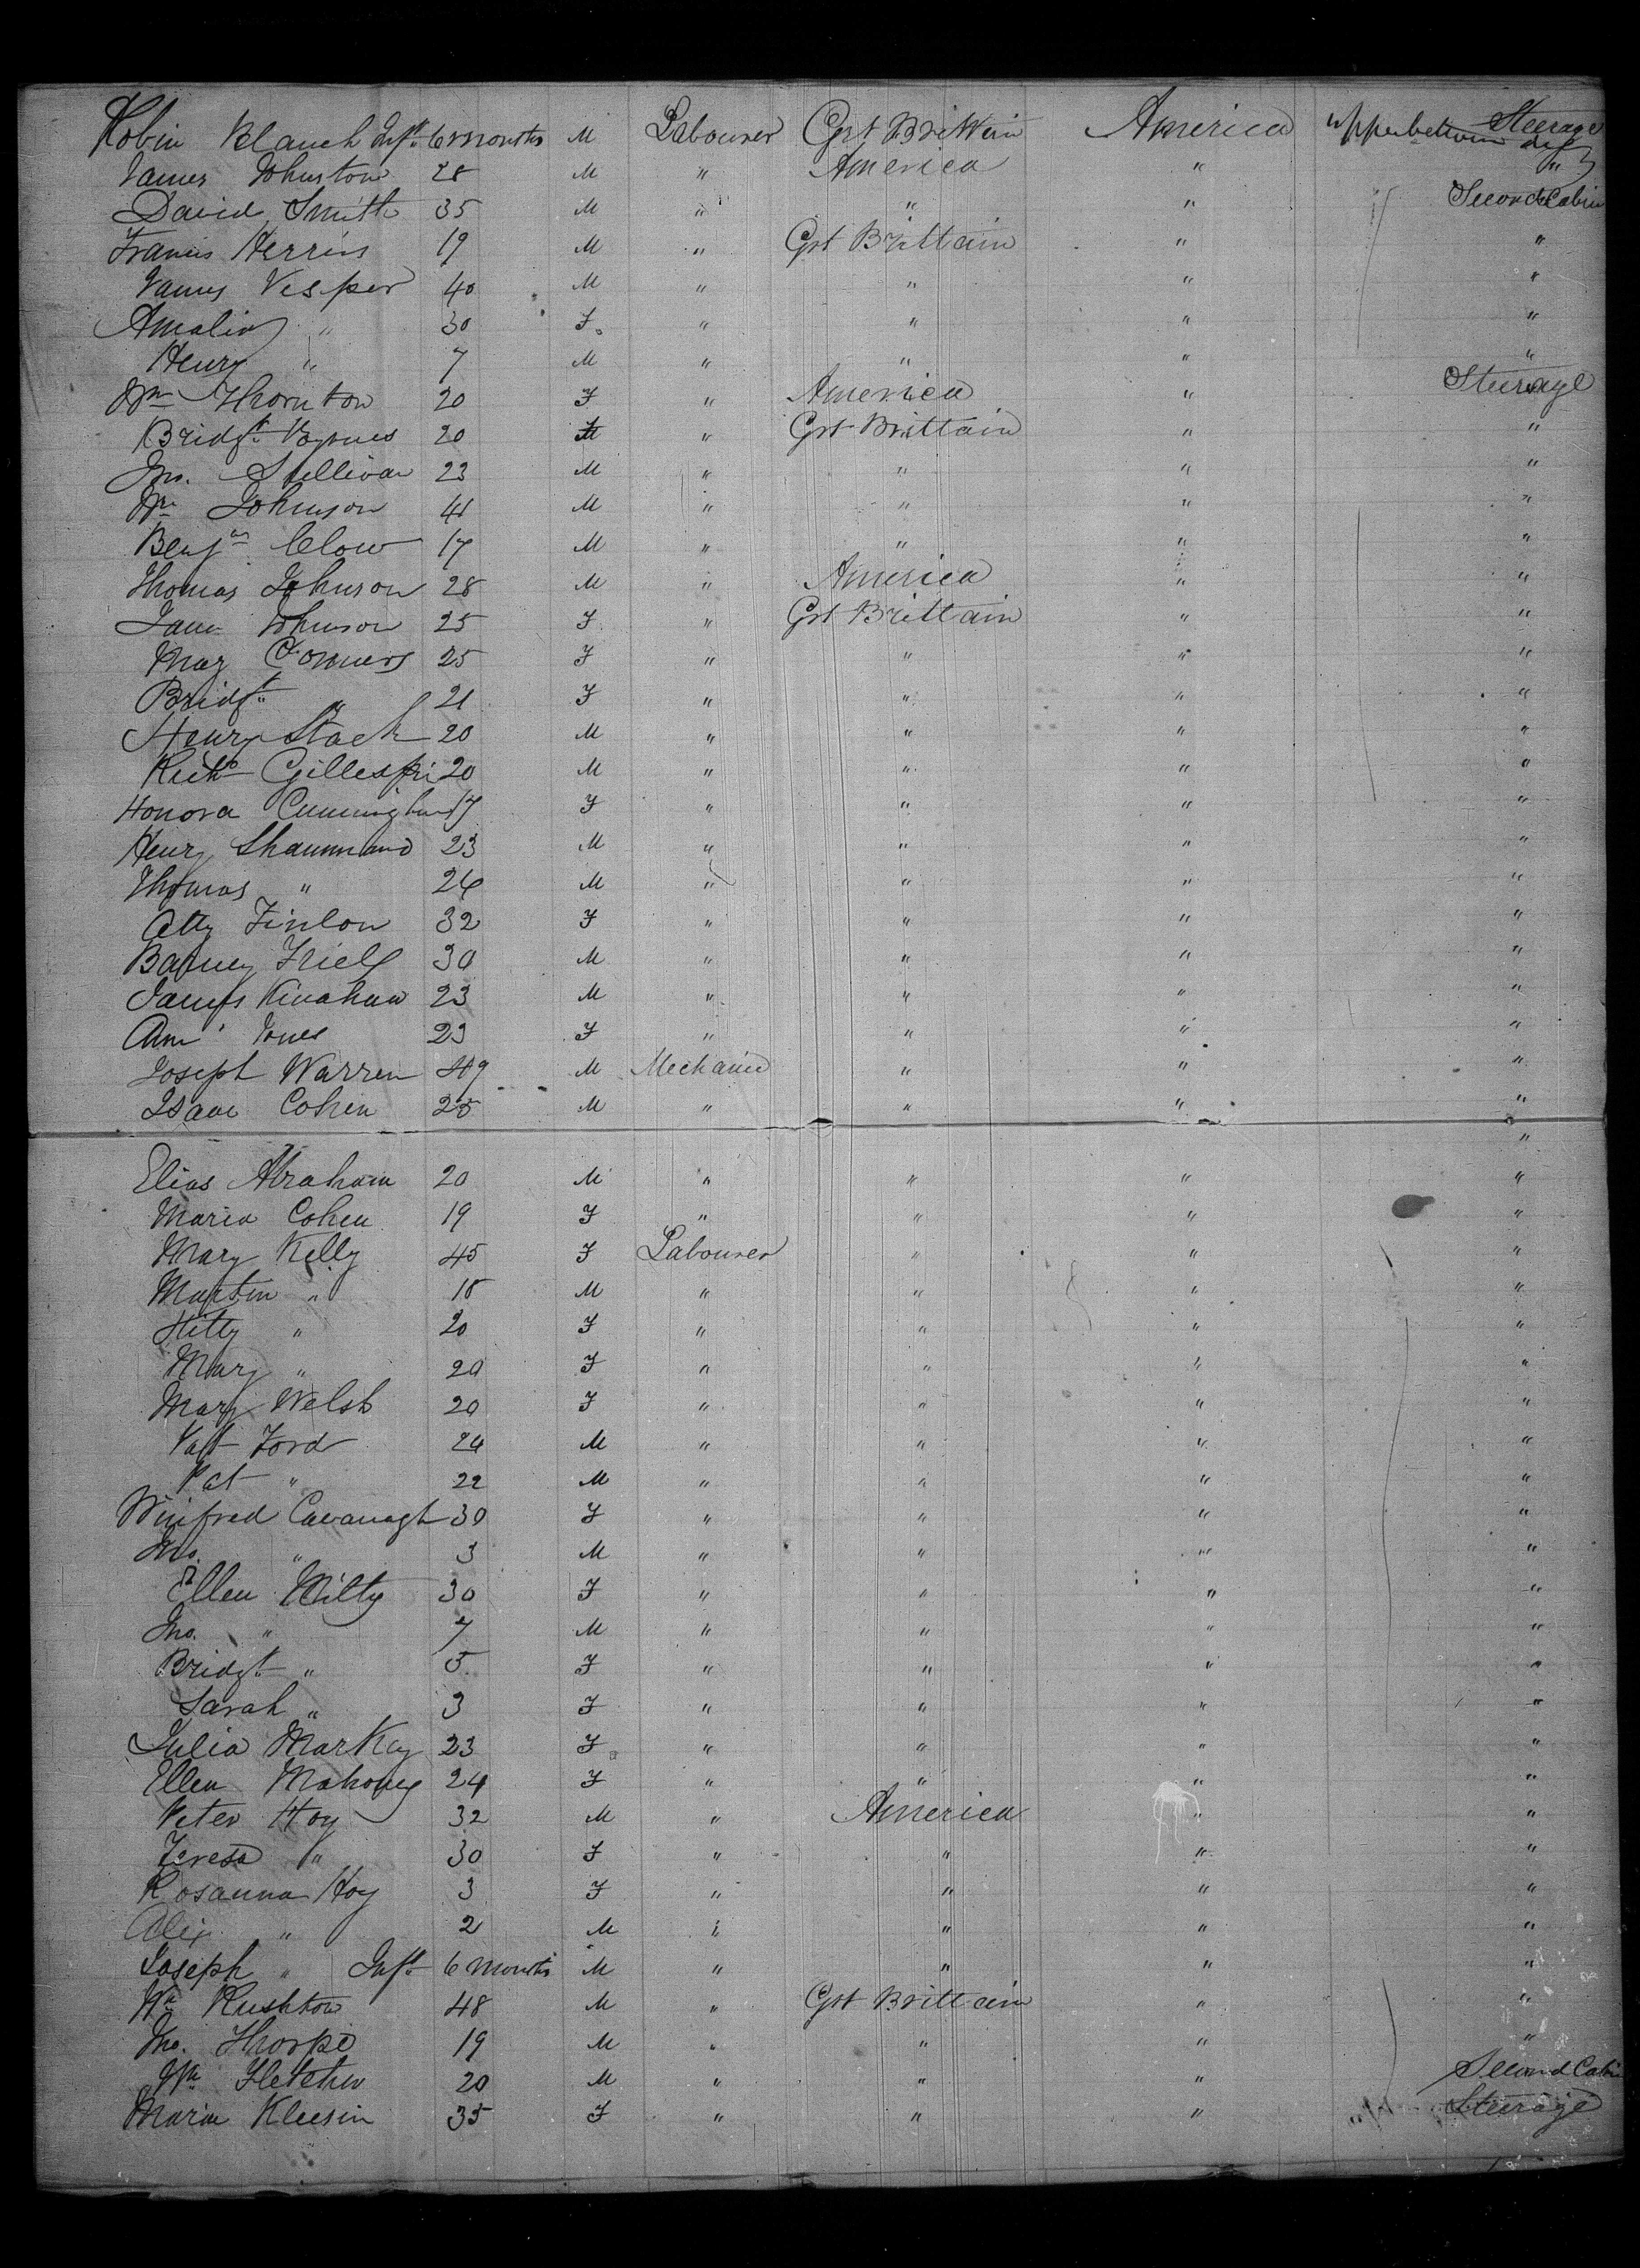 Robin Blanch Inft. 6 months M Labourer Grt Brittain America upper between Steerage
James Johnston 28 M " America " "
David Smith 35 M " " " Second Cabin
Francis Herrins 19 M " Grt Brittain " "
James Vesper 40 M " " " "
Amalia " 30 F. " " " "
Henry " 7 M " " " "
Wm Thornton 20 F " America " Steerage
Bridgt. 20 " Grt Brittain " "
Jno. Sullivan 23 M " " " "
Wm Johnson 41 M " " " "
Benjn Clow 17 M " " " "
Thomas Johnson 28 M " America " "
Jane Johnson 25 F " Grt Brittain " "
Mary Connors 25 F " " " "
Bridgt. " 21 F " " " "
Henry Stack 20 M " " " "
Richd Gillespi 20 M " " " "
Honora Cunningham 17 F " " " "
Henry Shaunnand 23 M " " " "
Thomas " 26 M " " " "
Atty Finlon 32 F " " " "
Barney Friel 30 M " " " "
James Kinahan 23 M " " " "
Ann Jones 23 F " " " "
Joseph Warren 49 M Mechanic " " "
Isaac Cohen 25 M " " " "
"
Elias Abraham 20 M " " " "
Maria Cohen 19 F " " " "
Mary Kelly 45 F Labourer " " "
Martin " 18 M " " " "
Kitty " 20 F " " " "
Mary " 20 F " " " "
Mary Welsh 20 F " " " "
Patt Ford 24 M " " " "
Pat " 22 M " " " "
Winifred Cavanagh 30 F " " " "
Jno. " 3 M " " " "
Ellen Milty 30 F " " " "
Jno. " 7 M " " " "
Bridgt " 5 F " " " "
Sarah " 3 F " " " "
Julia Markey 23 F " " " "
Ellen Mahoney 24 F " " " "
Peter Hoy 32 M " America " "
Teresa " 30 F " " " "
Rosanna Hoy 3 F " " " "
Alix " 2 M " " " "
Joseph " Inft. 6 months M " " " "
Wm Rushton 48 M " Grt Brittain " "
Jno. Thorpe 19 M " " " "
Wm Fletcher 20 M " " " Second Cabin
Maria Kleesin 35 F " " " Steerage